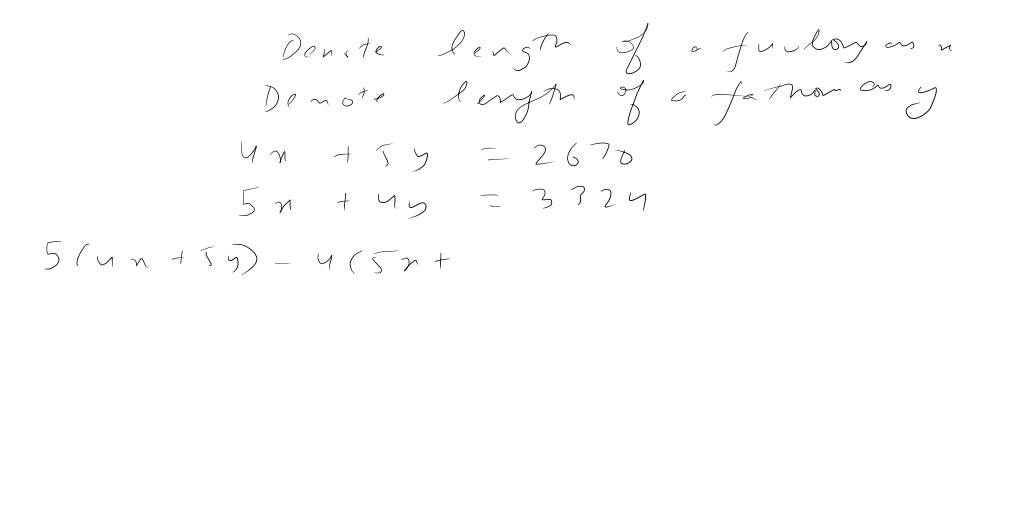 Denote length of a furlong as x
Denote length of a fathom as y
4x + 5y = 2670
5x + 4y = 3324
5(4x + 5y) - 4(5x +